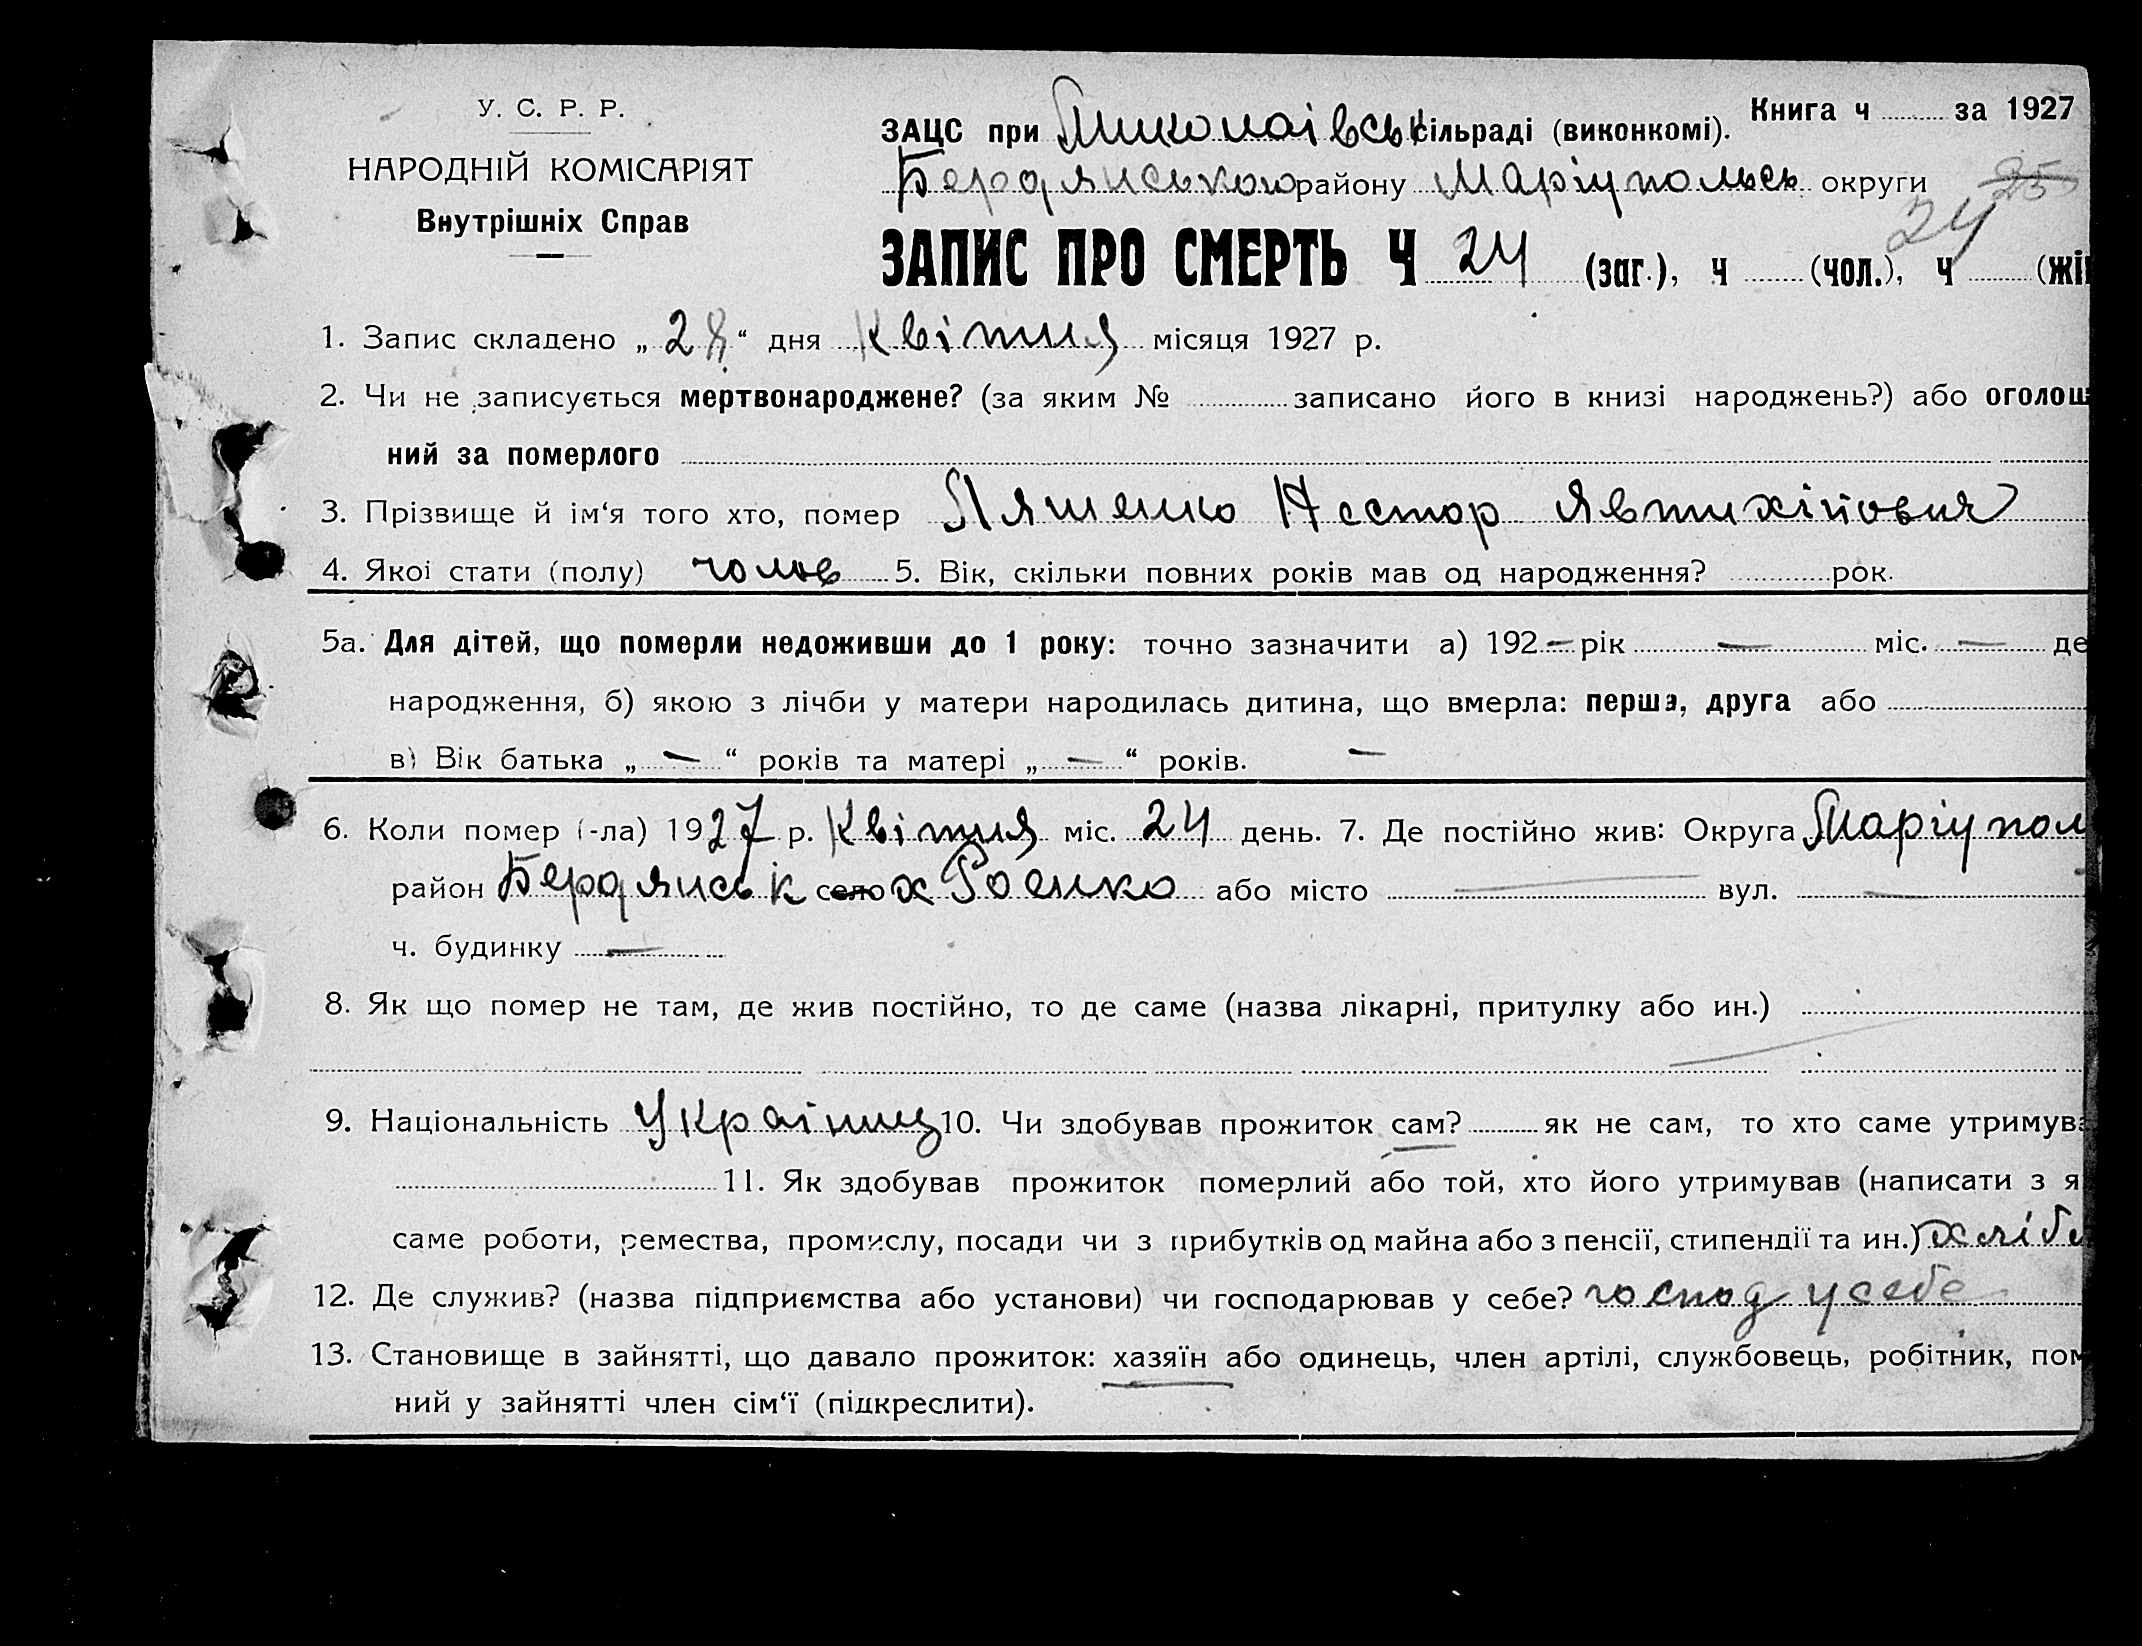 У. С. Р. Р.
НАРОДНІЙ КОМІСАРІЯТ
Внутрішніх Справ
Книга ч за 1927
ЗАЦС при Миколаівськ сільраді (виконкомі).
Бердянського району Маріупольск округи 25
24
ЗАПИС ПРО СМЕРТЬ Ч 24 (заг.), ч (чол.), ч (жі
1. Запис складено „28“ дня квітня місяця 1927 р.
2. Чи не записується мертвонароджене? (за яким № записано його в книзі народжень?) або оголош
ний за померлого
3. Прізвище й ім‘я того хто, помер Ляшенко Нестор Явтихійович
4. Якоі стати (полу) чолов 5. Вік, скільки повних років мав од народження? рок.
5а. Для дітей, що померли недоживши до 1 року: точно зазначити а) 192 – рік — міс. — де
народження, б) якою з лічби у матери народилась дитина, що вмерла: перша, друга або
в) Вік батька „—“ років та матері „—“ років. —
6. Коли помер (-ла) 1927 р. Квітня міс. 24 день. 7. Де постійно жив: Округа Маріупол
район Бердянськ село х Роенко або місто — вул. —
ч. будинку —
8. Як що помер не там, де жив постійно, то де саме (назва лікарні, притулку або ин.)
9. Національність Українец 10. Чи здобував прожиток сам? як не сам, то хто саме утримува
11. Як здобував прожиток померлий або той, хто його утримував (написати з я
саме роботи, ремества, промислу, посади чи з прибутків од майна або з пенсії, стипендії та ин.) хлібо
12. Де служив? (назва підприємства або установи) чи господарював у себе? господ у себе
13. Становище в зайнятті, що давало прожиток: хазяїн або одинець, член артілі, службовець, робітник, пом
ний у зайнятті член сім‘ї (підкреслити).